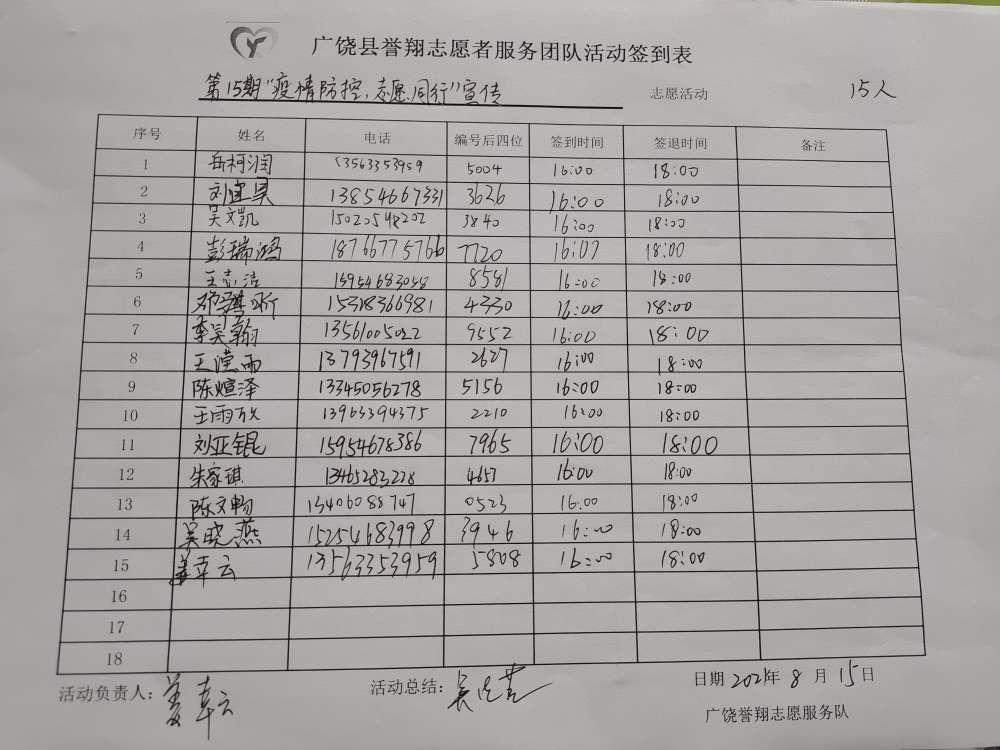 广饶县誉翔志愿者服务团队活动签到表
第15期"疫情防控，志愿同行"宣传 志愿活动 15人
序号 姓名 电话 编号后四位 签到时间 签退时间 备注
1 岳柯润 13563353959 5004 16:00 18:00
2 刘宜昊 13854667331 3626 16:00 18:00
3 吴文凯 15020548202 3840 16:00 18:00
4 彭瑞鸿 18766775766 7720 16:00 18:00
5 王志洁 13954683058 8581 16:00 18:00
6 15318366981 4330 16:00 18:00
7 李昊翰 13561005022 9552 16:00 18:00
8 王滢雨 13793967591 2627 16:00 18:00
9 陈煊泽 13345056278 5156 16:00 18:00
10 王雨欣 13963394375 2210 16:00 18:00
11 刘亚锟 15954678386 7965 16:00 18:00
12 朱家琪 13465283228 4657 16:00 18:00
13 陈文畅 13406088747 0523 16:00 18:00
14 吴晓燕 15254683998 3946 16:00 18:00
15 姜幸云 13563353959 5808 16:00 18:00
16
17
18
活动负责人：姜幸云 活动总结：吴晓燕 日期 2021年 8 月 15日
广饶誉翔志愿服务队